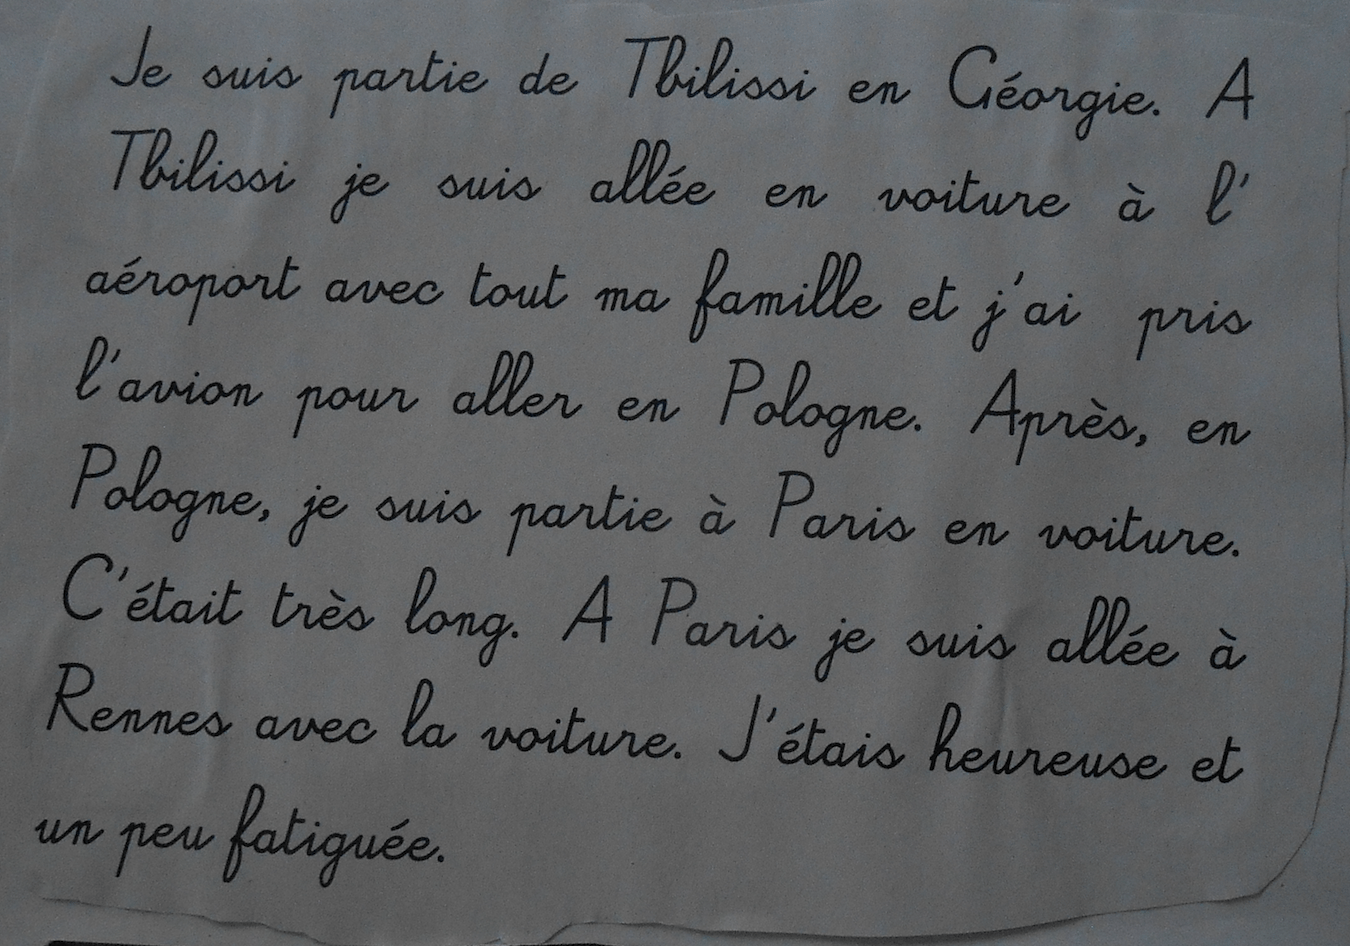 Je suis partie de Tbilissi en Géorgie. A
Tbilissi je suis allée en voiture à l'
aéroport avec tout ma famille et j'ai pris
l'avion pour aller en Pologne. Après, en
Pologne, je suis partie à Paris en voiture.
C'était très long. A Paris je suis allée à
Rennes avec la voiture. J'étais heureuse et
un peu fatiguée.